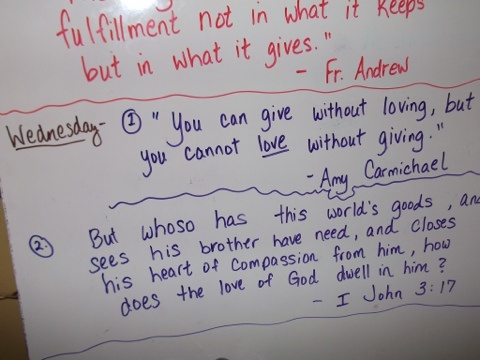 fulfillment not in what it keeps
but in what it gives."
- Fr. Andrew
Wednesday- ① "You can give without loving, but
you cannot love without giving."
- Amy Carmichael
2. But whoso has this world's goods, and
sees his brother have need, and closes
his heart of compassion from him, how
does the love of God dwell in him?
- I John 3:17